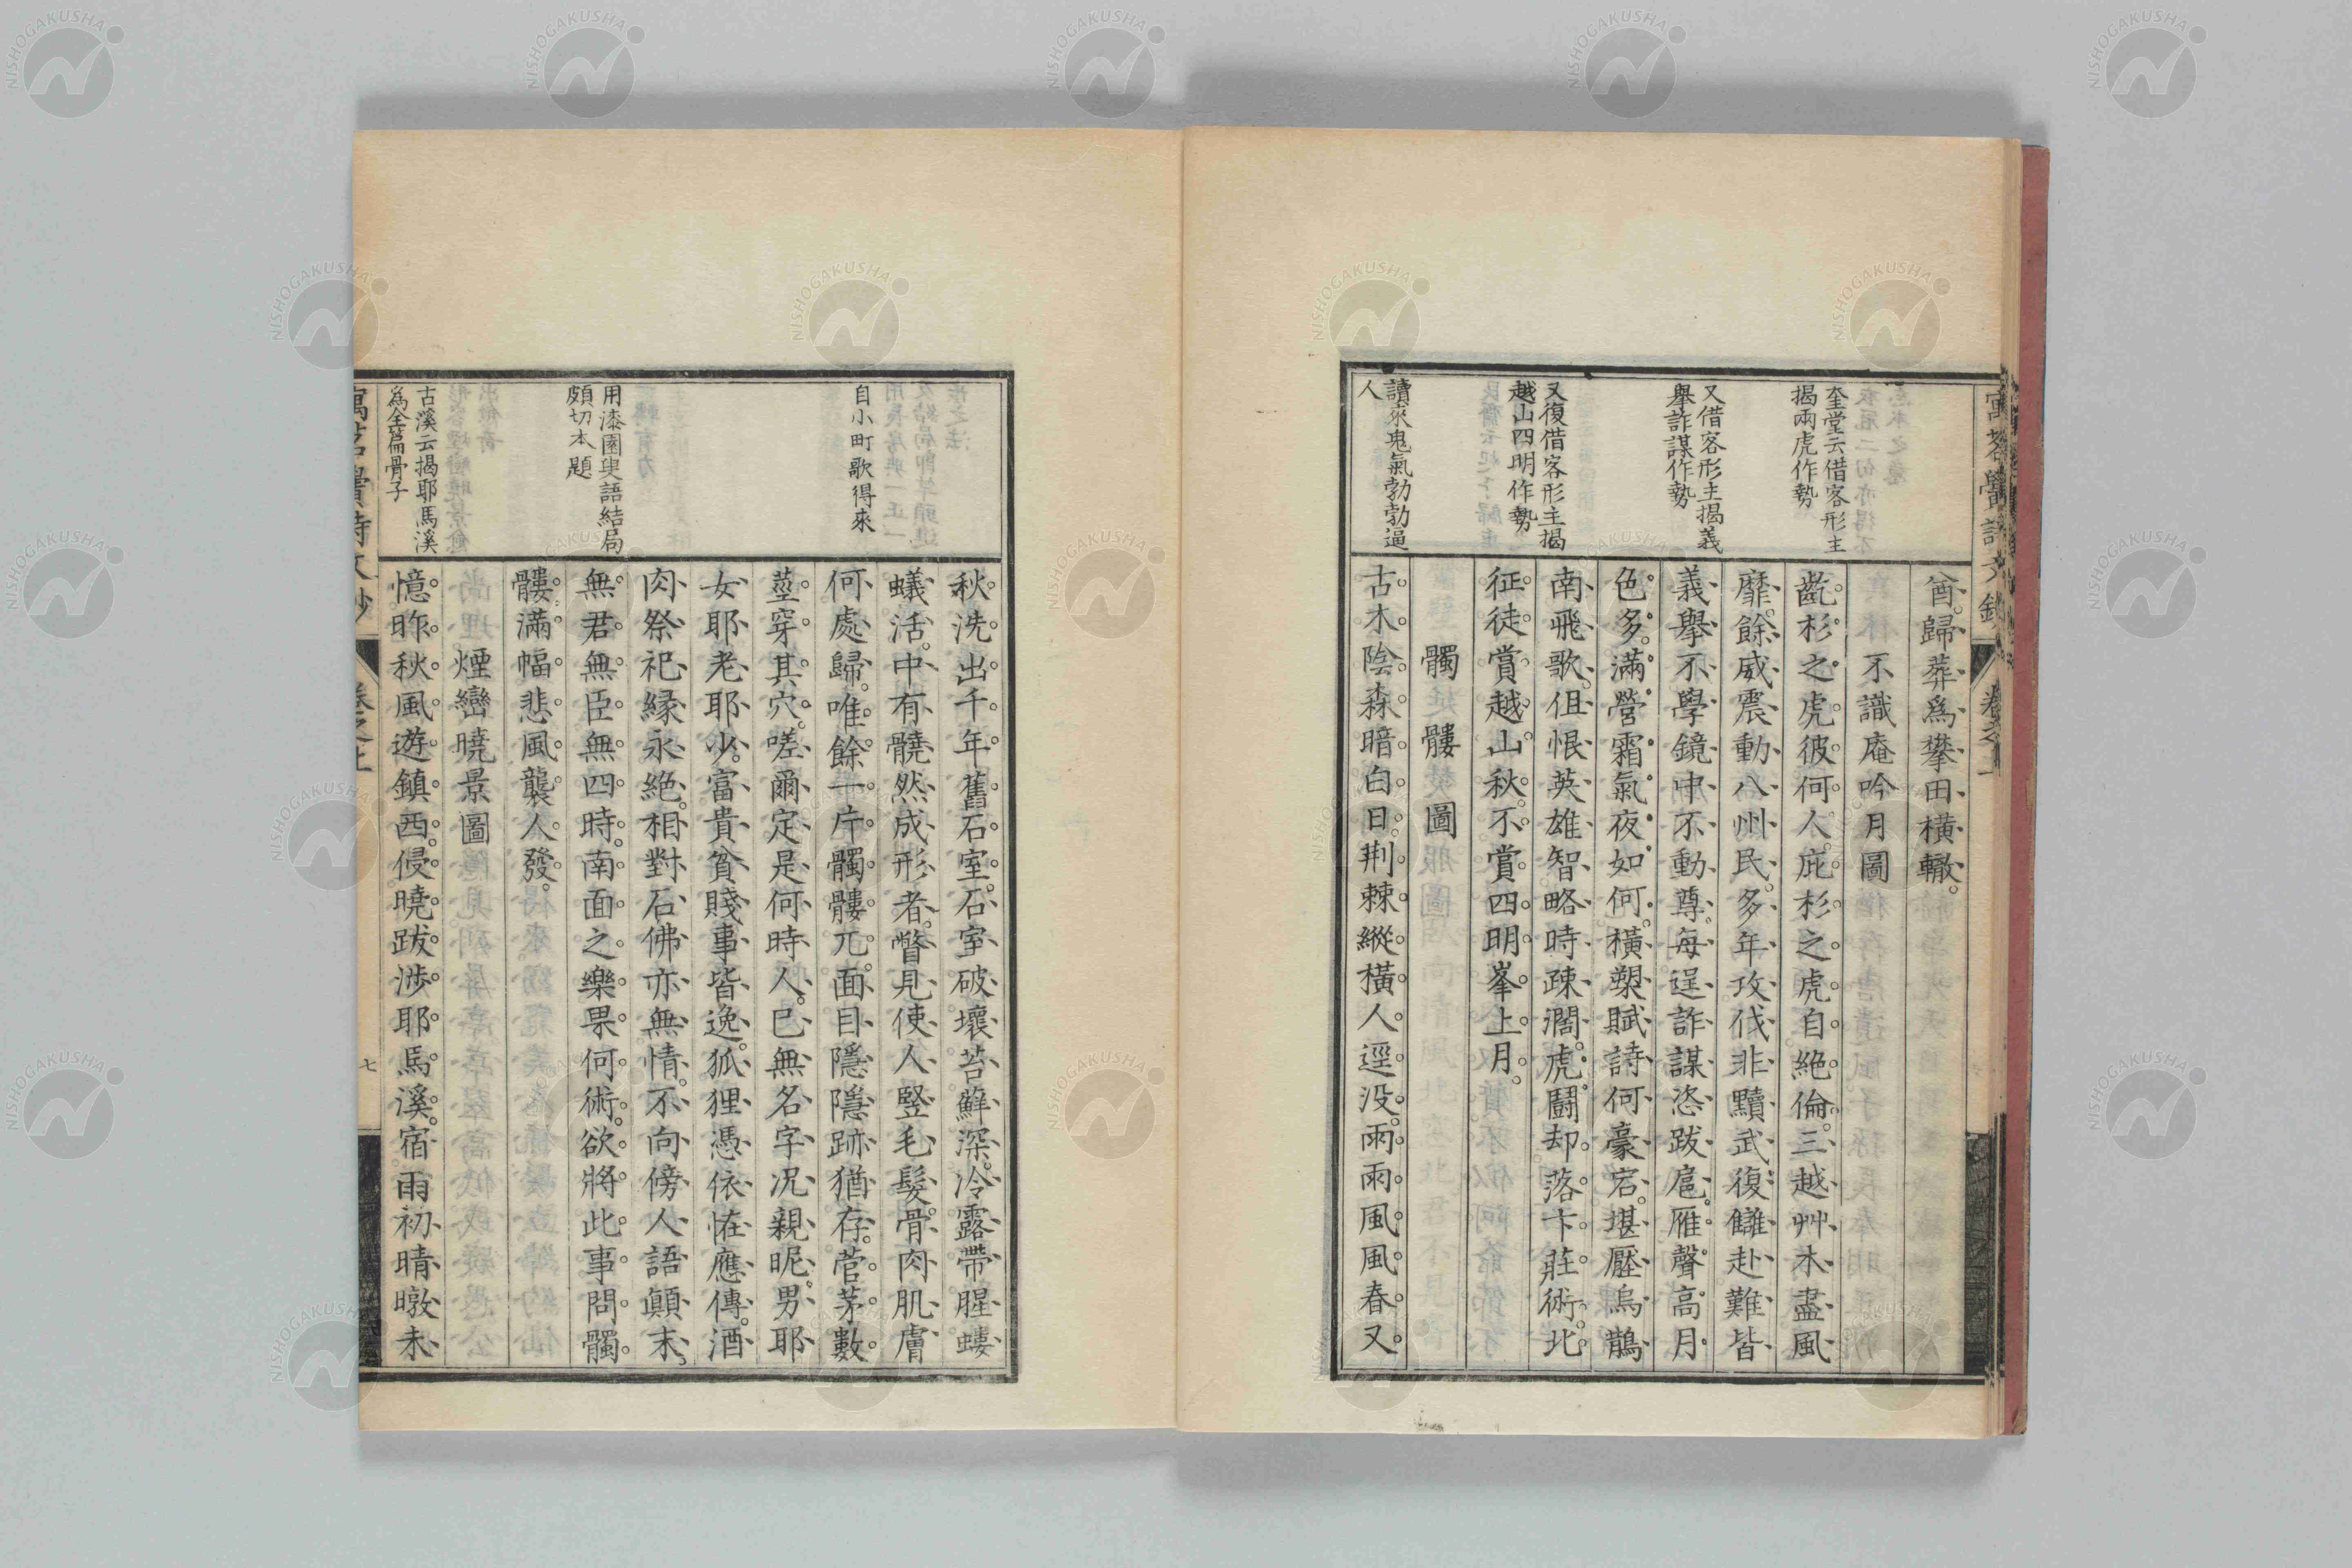 奎堂云借客形主
揭兩虎作勢
又借客形主揭義
舉詐謀作勢
又復借客形主揭
越山四明作勢
讀來鬼氣勃勃逼
人
酋歸葬爲攀田橫轍。
不識庵吟月圖
齕杉之虎彼何人。庇杉之虎自絶倫。三越艸木盡風
靡。餘威震動八州民。多年攻伐非黷武。復讎赴難皆
義擧。不學鏡中不動尊。每逞詐謀恣跋扈。雁聲高月
色多。滿營霜氣夜如何。橫槊賦詩何豪宕。堪壓烏鵲
南飛歌。但恨英雄智略時疎濶。虎鬪却落卞莊術。北
征徒賞越山秋。不賞四明峯上月。
髑髏圖
古木陰森暗白日。荆棘縱橫人逕没。雨雨風風春又
自小町歌得來
用漆園叟語結局
頗切本題
古溪云揭耶馬溪
爲全篇骨子
秋。洗出千年舊石室。石室破壞苔蘚深。冷露帶腥螻
蟻活。中有髐然成形者。瞥見使人竪毛髮。骨肉肌膚
何處歸。唯餘一片髑髏兀。面目隱隱跡猶存。菅茅數
莖穿其穴。嗟爾定是何時人。已無名字況親昵。男耶
女耶老耶少。富貴貧賤事皆逸。狐狸憑依怪應傳。酒
肉祭祀緣永絶。相對石佛亦無情。不向傍人語顚末。
無君無臣無四時。南面之樂果何術。欲將此事問髑
髏。滿幅悲風襲人發。
煙巒曉景圖
憶昨秋風遊鎮西。侵曉跋渉耶馬溪。宿雨初晴暾未
七
NISHOGAKUSHA